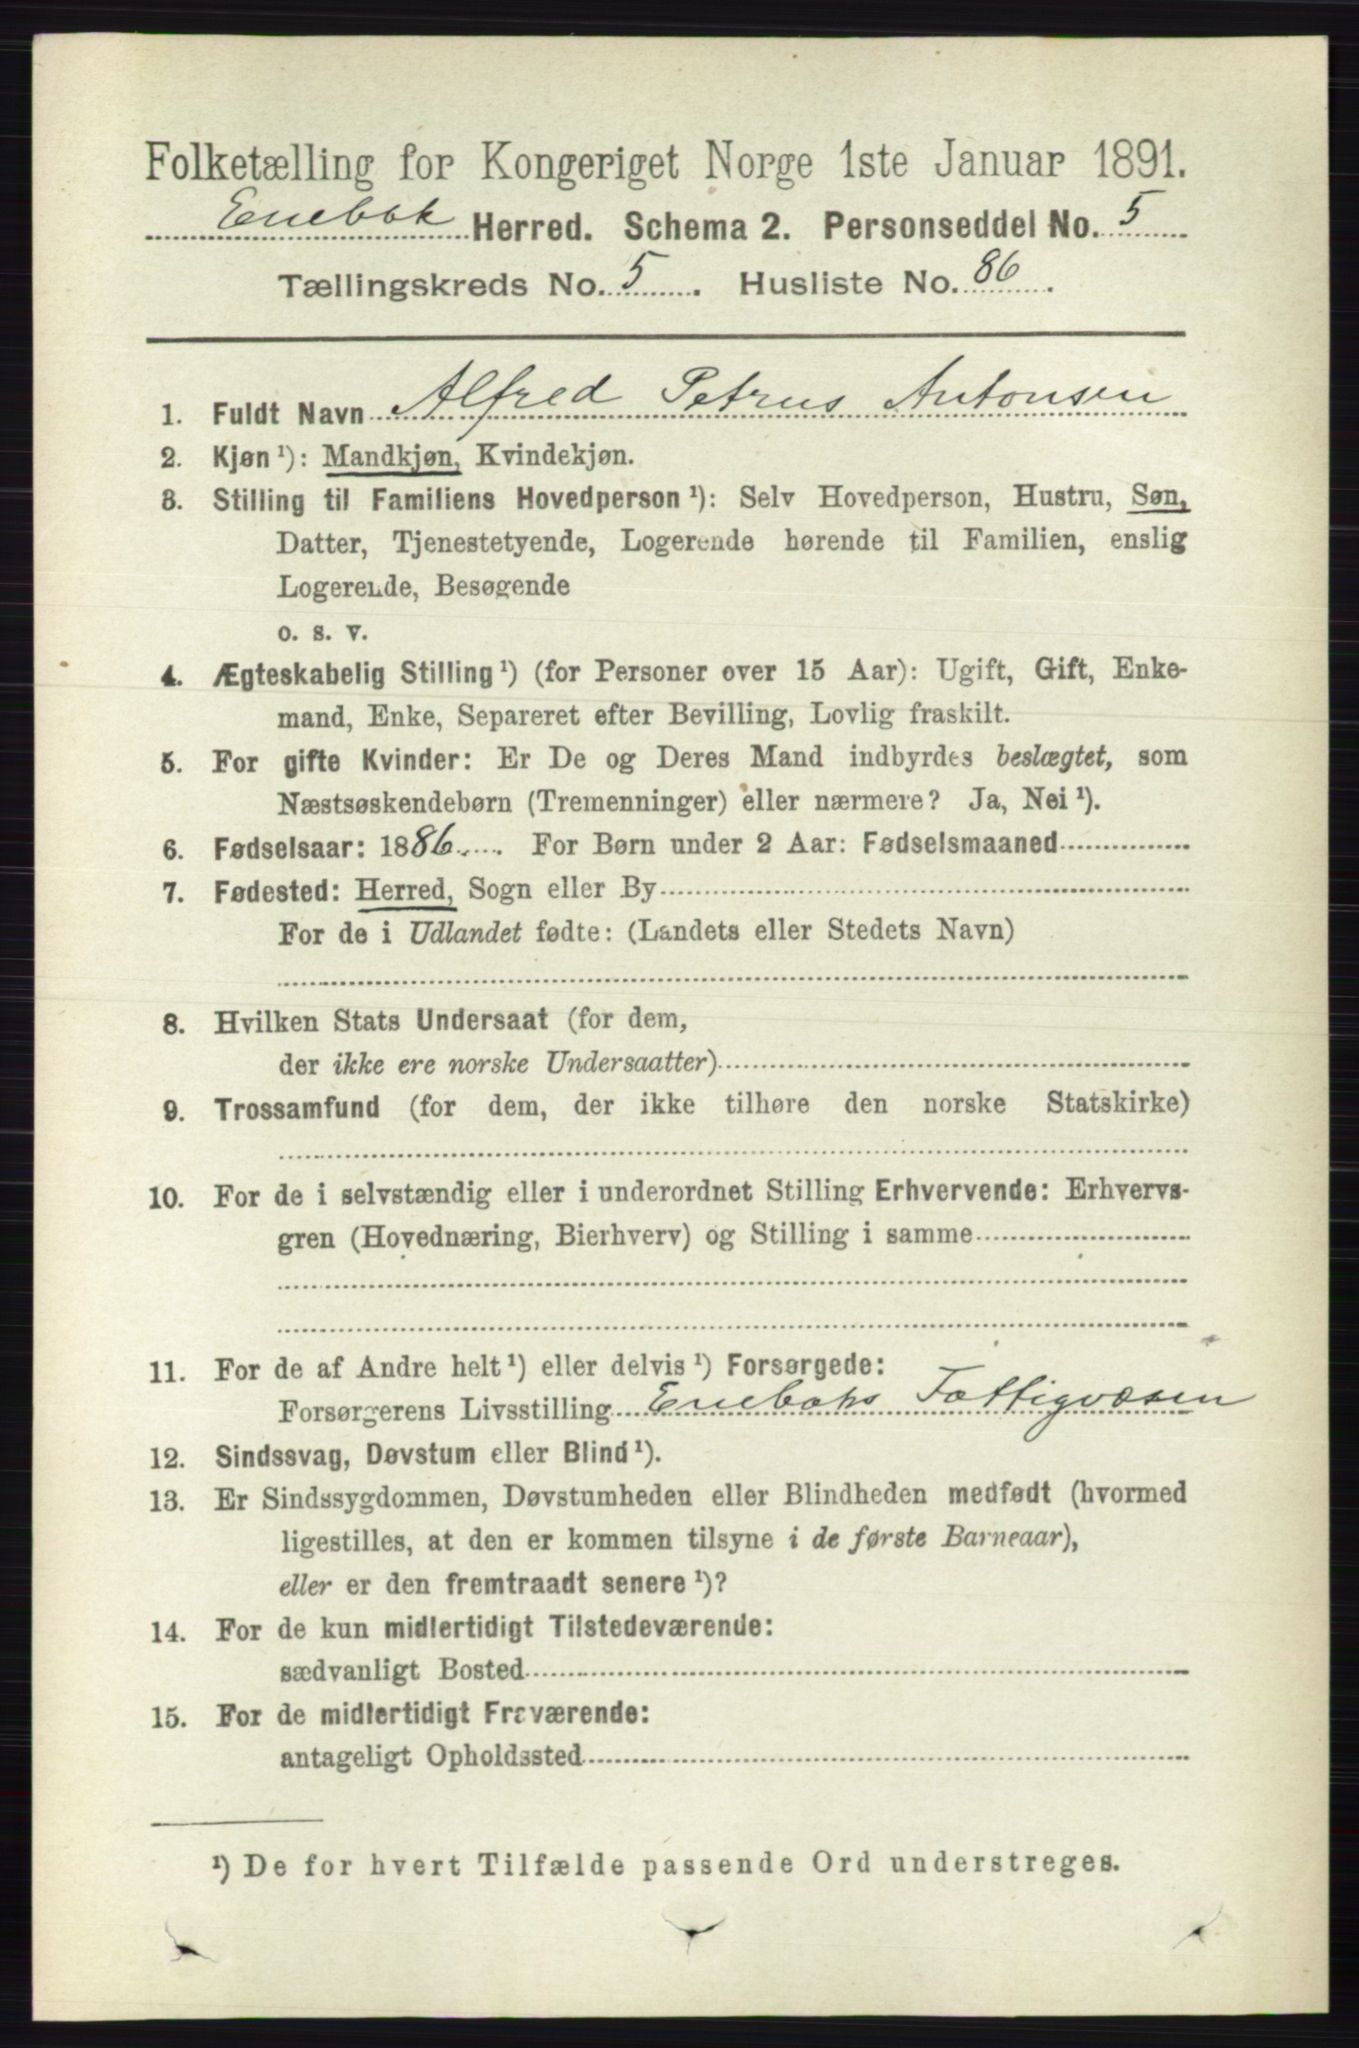 Folketælling for Kongeriget Norge 1ste Januar 1891.
Enebok Herred. Schema 2. Personseddel No. 5
Tællingskreds No. 5. Husliste No. 86.
1. Fuldt Navn Alfred Petrus Antonsen
2. Kjøn ¹): Mandkjøn, Kvindekjøn.
3. Stilling til Familiens Hovedperson ¹): Selv Hovedperson, Hustru, Søn,
Datter, Tjenestetyende, Logerende hørende til Familien, enslig
Logerende, Besøgende
o. s. v.
4. Ægteskabelig Stilling ¹) (for Personer over 15 Aar): Ugift, Gift, Enke-
mand, Enke, Separeret efter Bevilling, Lovlig fraskilt.
5. For gifte Kvinder: Er De og Deres Mand indbyrdes beslægtet, som
Næstsøskendebørn (Tremenninger) eller nærmere? Ja, Nei ¹).
6. Fødselsaar: 1886. For Børn under 2 Aar: Fødselsmaaned
7. Fødested: Herred, Sogn eller By
For de i Udlandet fødte: (Landets eller Stedets Navn)
8. Hvilken Stats Undersaat (for dem,
der ikke ere norske Undersaatter)
9. Trossamfund (for dem, der ikke tilhøre den norske Statskirke)
10. For de i selvstændig eller i underordnet Stilling Erhvervende: Erhvervs-
gren (Hovednæring, Bierhverv) og Stilling i samme
11. For de af Andre helt ¹) eller delvis ¹) Forsørgede:
Forsørgerens Livsstilling Eneboks Fattigvæsen
12. Sindssvag, Døvstum eller Blind ¹).
13. Er Sindssygdommen, Døvstumheden eller Blindheden medfødt (hvormed
ligestilles, at den er kommen tilsyne i de første Barneaar),
eller er den fremtraadt senere ¹)?
14. For de kun midlertidigt Tilstedeværende:
sædvanligt Bosted
15. For de midlertidigt Fraværende:
antageligt Opholdssted
¹) De for hvert Tilfælde passende Ord understreges.